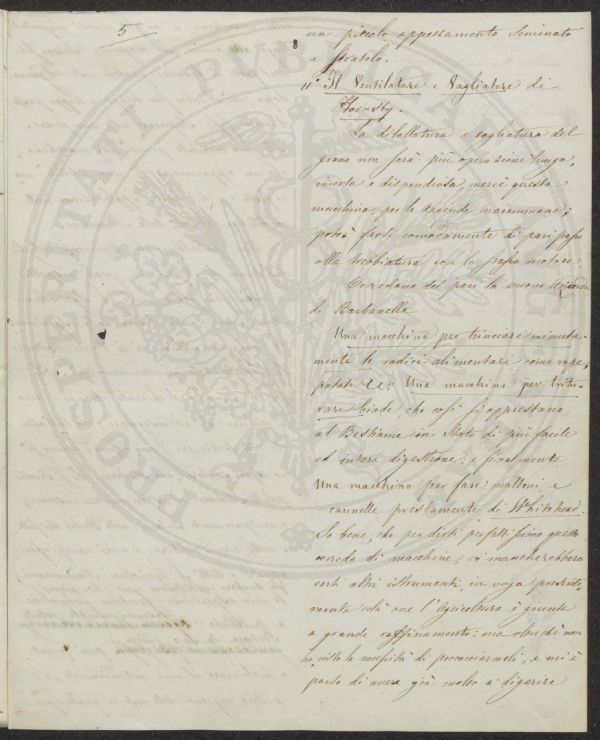 5
un piccolo appezzamento seminato
a Prasolo.
11° Il Ventilatore e Vagliatore di
Hornsby.
La ditollatura e vagliatura del
grano non sarà più operazione lunga,
incerta e dispendiosa, mercè questa
macchina, per le Aziende maremmane;
potrà farsi comodamente di pari passo
alla trebbiatura con lo stesso motore.
Corredano del pari la nuova Azienda
di Barbanella
Una macchina per trinciare minuta-
mente le radici alimentari come rape,
patate ec; Una macchina per tritu-
rare biade, che così si apprestano
al Bestiame in stato di più facile
ed intera digestione; e finalmente
Una macchina per fare mattoni e
cannelle prestamente di Whitehead.
So bene, che per dirsi perfettissimo questo
corredo di macchine, ci mancherebbero
certi altri istrumenti, in voga presente-
mente colà ove l'Agricoltura è giunta
a grande raffinamento: ma oltrechè non
ho, visto la necessità di procacciarmeli, e mi è
parso di avere già molto a digerire
PROSPERITATI PUBLICAE